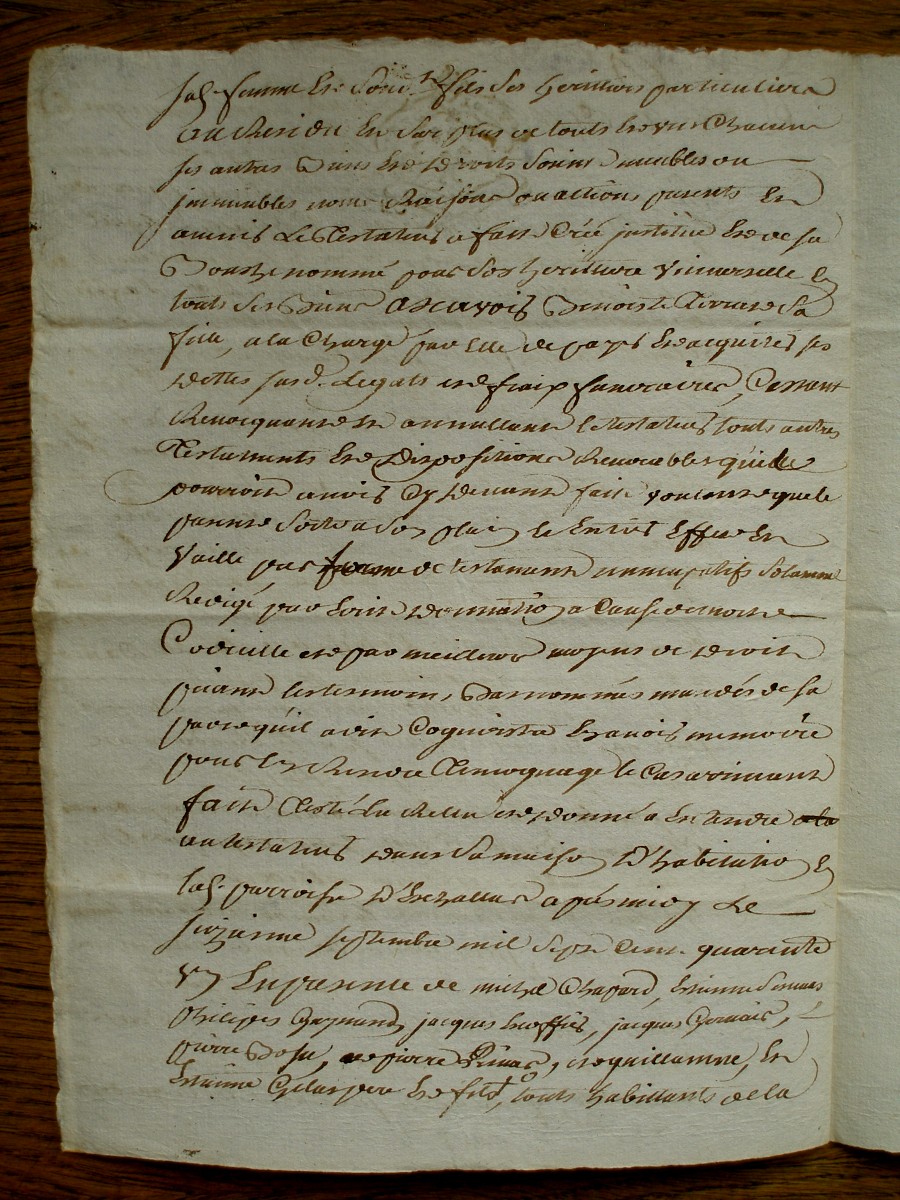 femme et fils ses heritiers particuliers
Au Residu et surplus de touts et uns chacuns
ses autres biens et droits soint meubles ou
immeubles noms Raisons ou actions presents et
avenir le Testateur a fait créé institué et de sa
Bouche nommé pour son heritiere universelle en
touts ses Biens Ascavoir Benoiste sa
fille, a la Charge par elle de payer et acquiter ses
dettes susd. Legats et fraix funeraires, Cassant
Revocquant et annullant le testateur touts autres
Testaments et Dispositions Revocables qu'elle
pourroit avoir cy devant fait voulant que le
present sorte a son plain et Entier Effect et
Vaille par forme de testament nuncupatif
Redigé par Ecrit donnation a Cause de mort
Codicille et par meilleur moyens de droit
priant les tesmoins Basnommés mandés de sa
part qu'il a dit Cognoistre et avoir memoire
pour en Rendre Temoignage le Cas avenant
fait Testé lu Relu et donné a Entendre a la
au testateur dans sa maison D'habitation en
lad. parroisse apres midy Le
sixieme septembre mil Sept Cent quarente
un En presence de michel Chapard, Etienne
philipes jacques jacques Gervais,
pierre pierre et guillaume, et
Etienne pere et fils, touts habittants de la